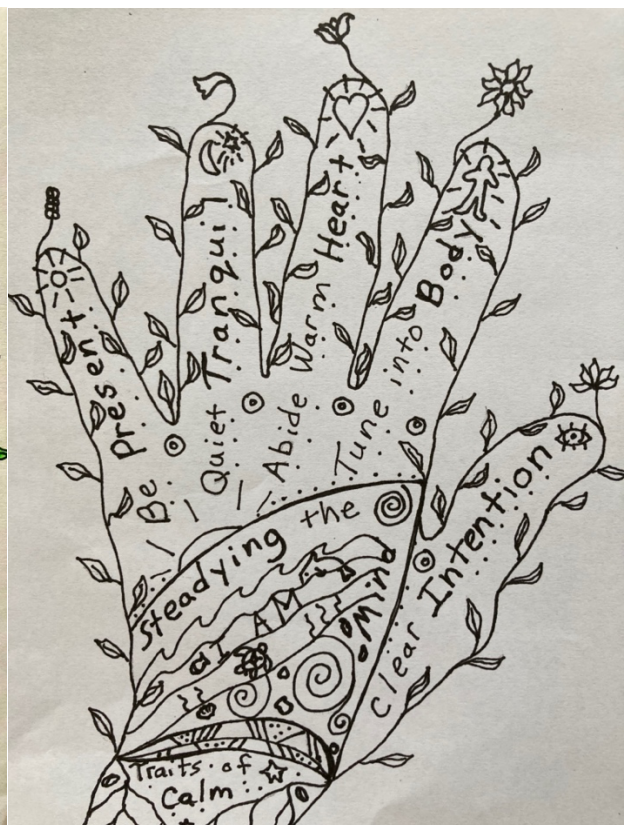 Be Present
Quiet Tranquil
Abide Warm Heart
Tune into Body
Clear Intention
Steadying the
Mind
I AM
Traits of
Calm